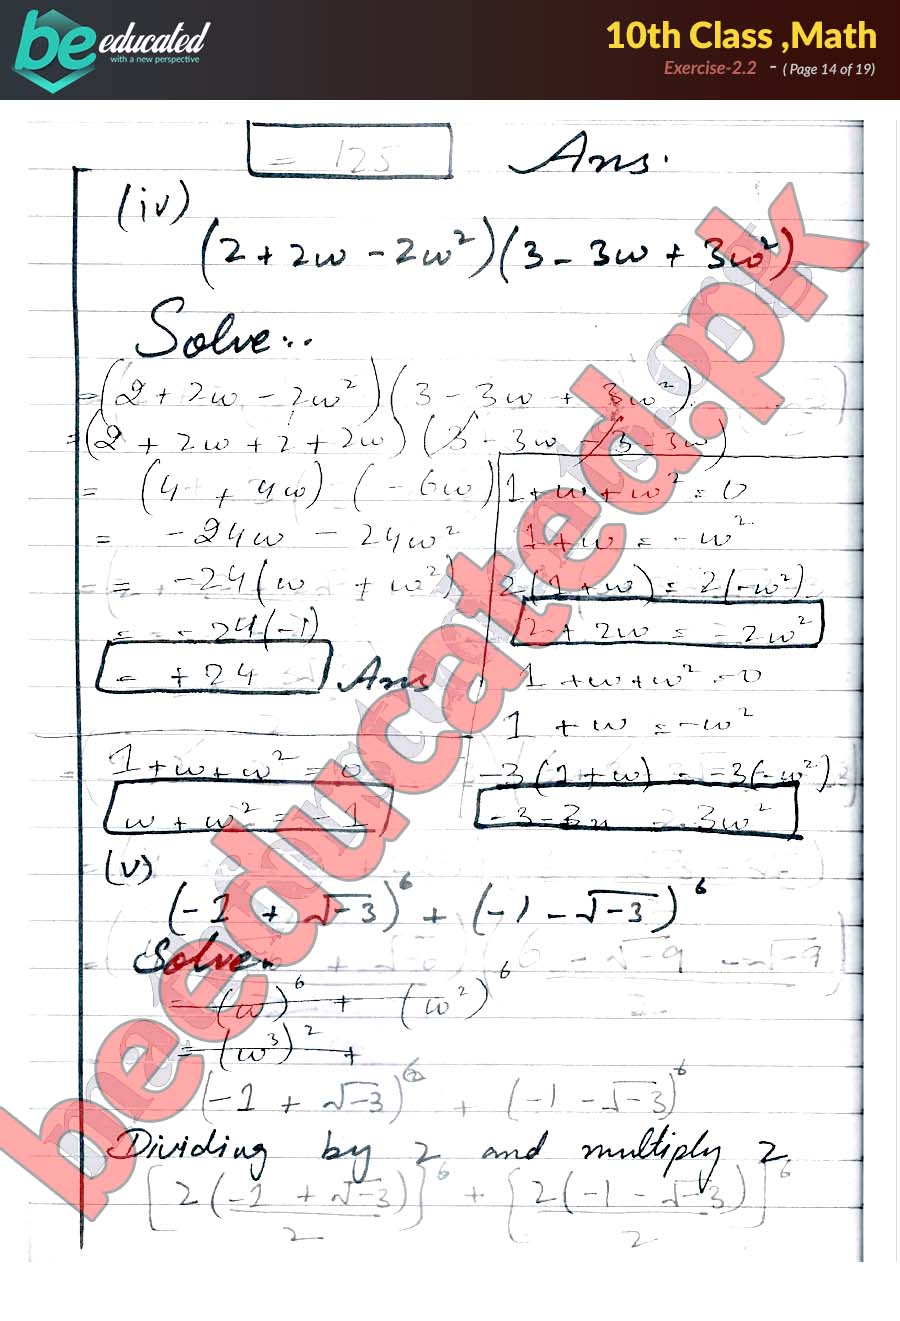 be educated
with a new perspective
10th Class ,Math
Exercise-2.2 - ( Page 14 of 19)
= 125 Ans.
(iv)
(2 + 2ω - 2ω²)(3 - 3ω + 3ω²)
Solve..
= (2 + 2ω - 2ω²) (3 - 3ω + 3ω²)
= (2 + 2ω + 2 + 2ω) (3 - 3ω - 3 - 3ω)
= (4 + 4ω) (-6ω)
= -24ω - 24ω²
= -24(ω + ω²)
= -24(-1)
= +24 Ans
1 + ω + ω² = 0
1 + ω = -ω²
2(1 + ω) = 2(-ω²)
2 + 2ω = -2ω²
1 + ω + ω² = 0
1 + ω = -ω²
-3(1 + ω) = -3(-ω²)
-3 - 3ω = 3ω²
1 + ω + ω² = 0
ω + ω² = -1
(v)
(-1 + √-3)⁶ + (-1 - √-3)⁶
Solve..
= (ω)⁶ + (ω²)⁶
= (ω³)² +
(-1 + √-3)⁶ + (-1 - √-3)⁶
Dividing by 2 and multiply 2
[2(-1 + √-3)/2]⁶ + [2(-1 - √-3)/2]⁶
beeducated.pk